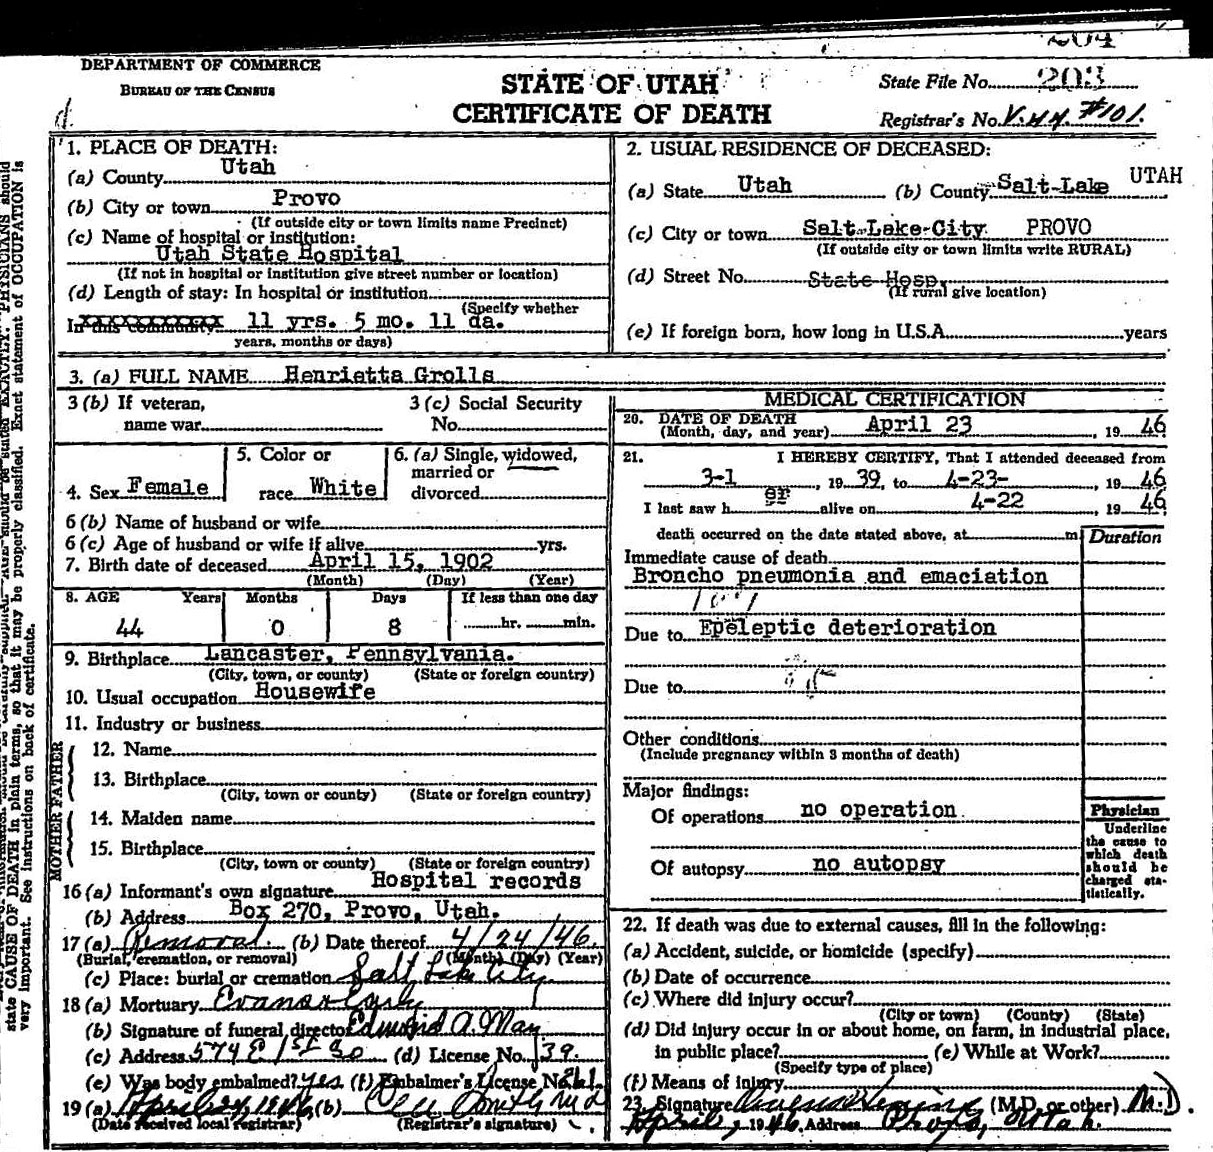 DEPARTMENT OF COMMERCE
BUREAU OF THE CENSUS
STATE OF UTAH
CERTIFICATE OF DEATH
204
State File No. 203
Registrar's No. V-44 #101.
d.
1. PLACE OF DEATH:
(a) County Utah
(b) City or town Provo
(If outside city or town limits name Precinct)
(c) Name of hospital or institution:
Utah State Hospital
(If not in hospital or institution give street number or location)
(d) Length of stay: In hospital or institution
(Specify whether
In this community 11 yrs. 5 mo. 11 da.
years, months or days)
2. USUAL RESIDENCE OF DECEASED:
(a) State Utah (b) County Salt Lake UTAH
(c) City or town Salt Lake City PROVO
(If outside city or town limits write RURAL)
(d) Street No. State Hosp.
(If rural give location)
(e) If foreign born, how long in U.S.A. years
3. (a) FULL NAME Henrietta Grolls
3 (b) If veteran, name war
3 (c) Social Security No.
4. Sex Female
5. Color or race White
6. (a) Single, widowed, married or divorced
6 (b) Name of husband or wife
6 (c) Age of husband or wife if alive yrs.
7. Birth date of deceased April 15, 1902
(Month) (Day) (Year)
8. AGE Years Months Days If less than one day
44 0 8 hr. min.
9. Birthplace Lancaster, Pennsylvania.
(City, town, or county) (State or foreign country)
10. Usual occupation Housewife
11. Industry or business
FATHER
12. Name
13. Birthplace
(City, town or county) (State or foreign country)
MOTHER
14. Maiden name
15. Birthplace
(City, town or county) (State or foreign country)
16 (a) Informant's own signature Hospital records
(b) Address Box 270, Provo, Utah.
17 (a) Removal (b) Date thereof 4/24/46.
(Burial, cremation, or removal) (Month) (Day) (Year)
(c) Place: burial or cremation Salt Lake City
18 (a) Mortuary Evans & Early
(b) Signature of funeral director Edmund A. May
(c) Address 574 E 1st So (d) License No. 139.
(e) Was body embalmed? Yes (f) Embalmer's License No. 211.
19 (a) April 24, 1946 (b)
(Date received local registrar) (Registrar's signature)
MEDICAL CERTIFICATION
20. DATE OF DEATH
(Month, day, and year) April 23, 19 46
21. I HEREBY CERTIFY, That I attended deceased from
3-1, 19 39, to 4-23-, 19 46
I last saw h er alive on 4-22, 19 46
death occurred on the date stated above, at m
Duration
Immediate cause of death
Broncho pneumonia and emaciation
Due to Epeleptic deterioration
Due to
Other conditions
(Include pregnancy within 3 months of death)
Major findings:
Of operations no operation
Of autopsy no autopsy
Physician
Underline
the cause to
which death
should be
charged sta-
tistically.
22. If death was due to external causes, fill in the following:
(a) Accident, suicide, or homicide (specify)
(b) Date of occurrence
(c) Where did injury occur?
(City or town) (County) (State)
(d) Did injury occur in or about home, on farm, in industrial place,
in public place? (e) While at Work?
(Specify type of place)
(f) Means of injury
23. Signature (M.D. or other) M.D.
April, 1946 Address Provo, Utah.
state CAUSE OF DEATH in plain terms, so that it may be properly classified. Exact statement of OCCUPATION is
very important. See instructions on back of certificate.